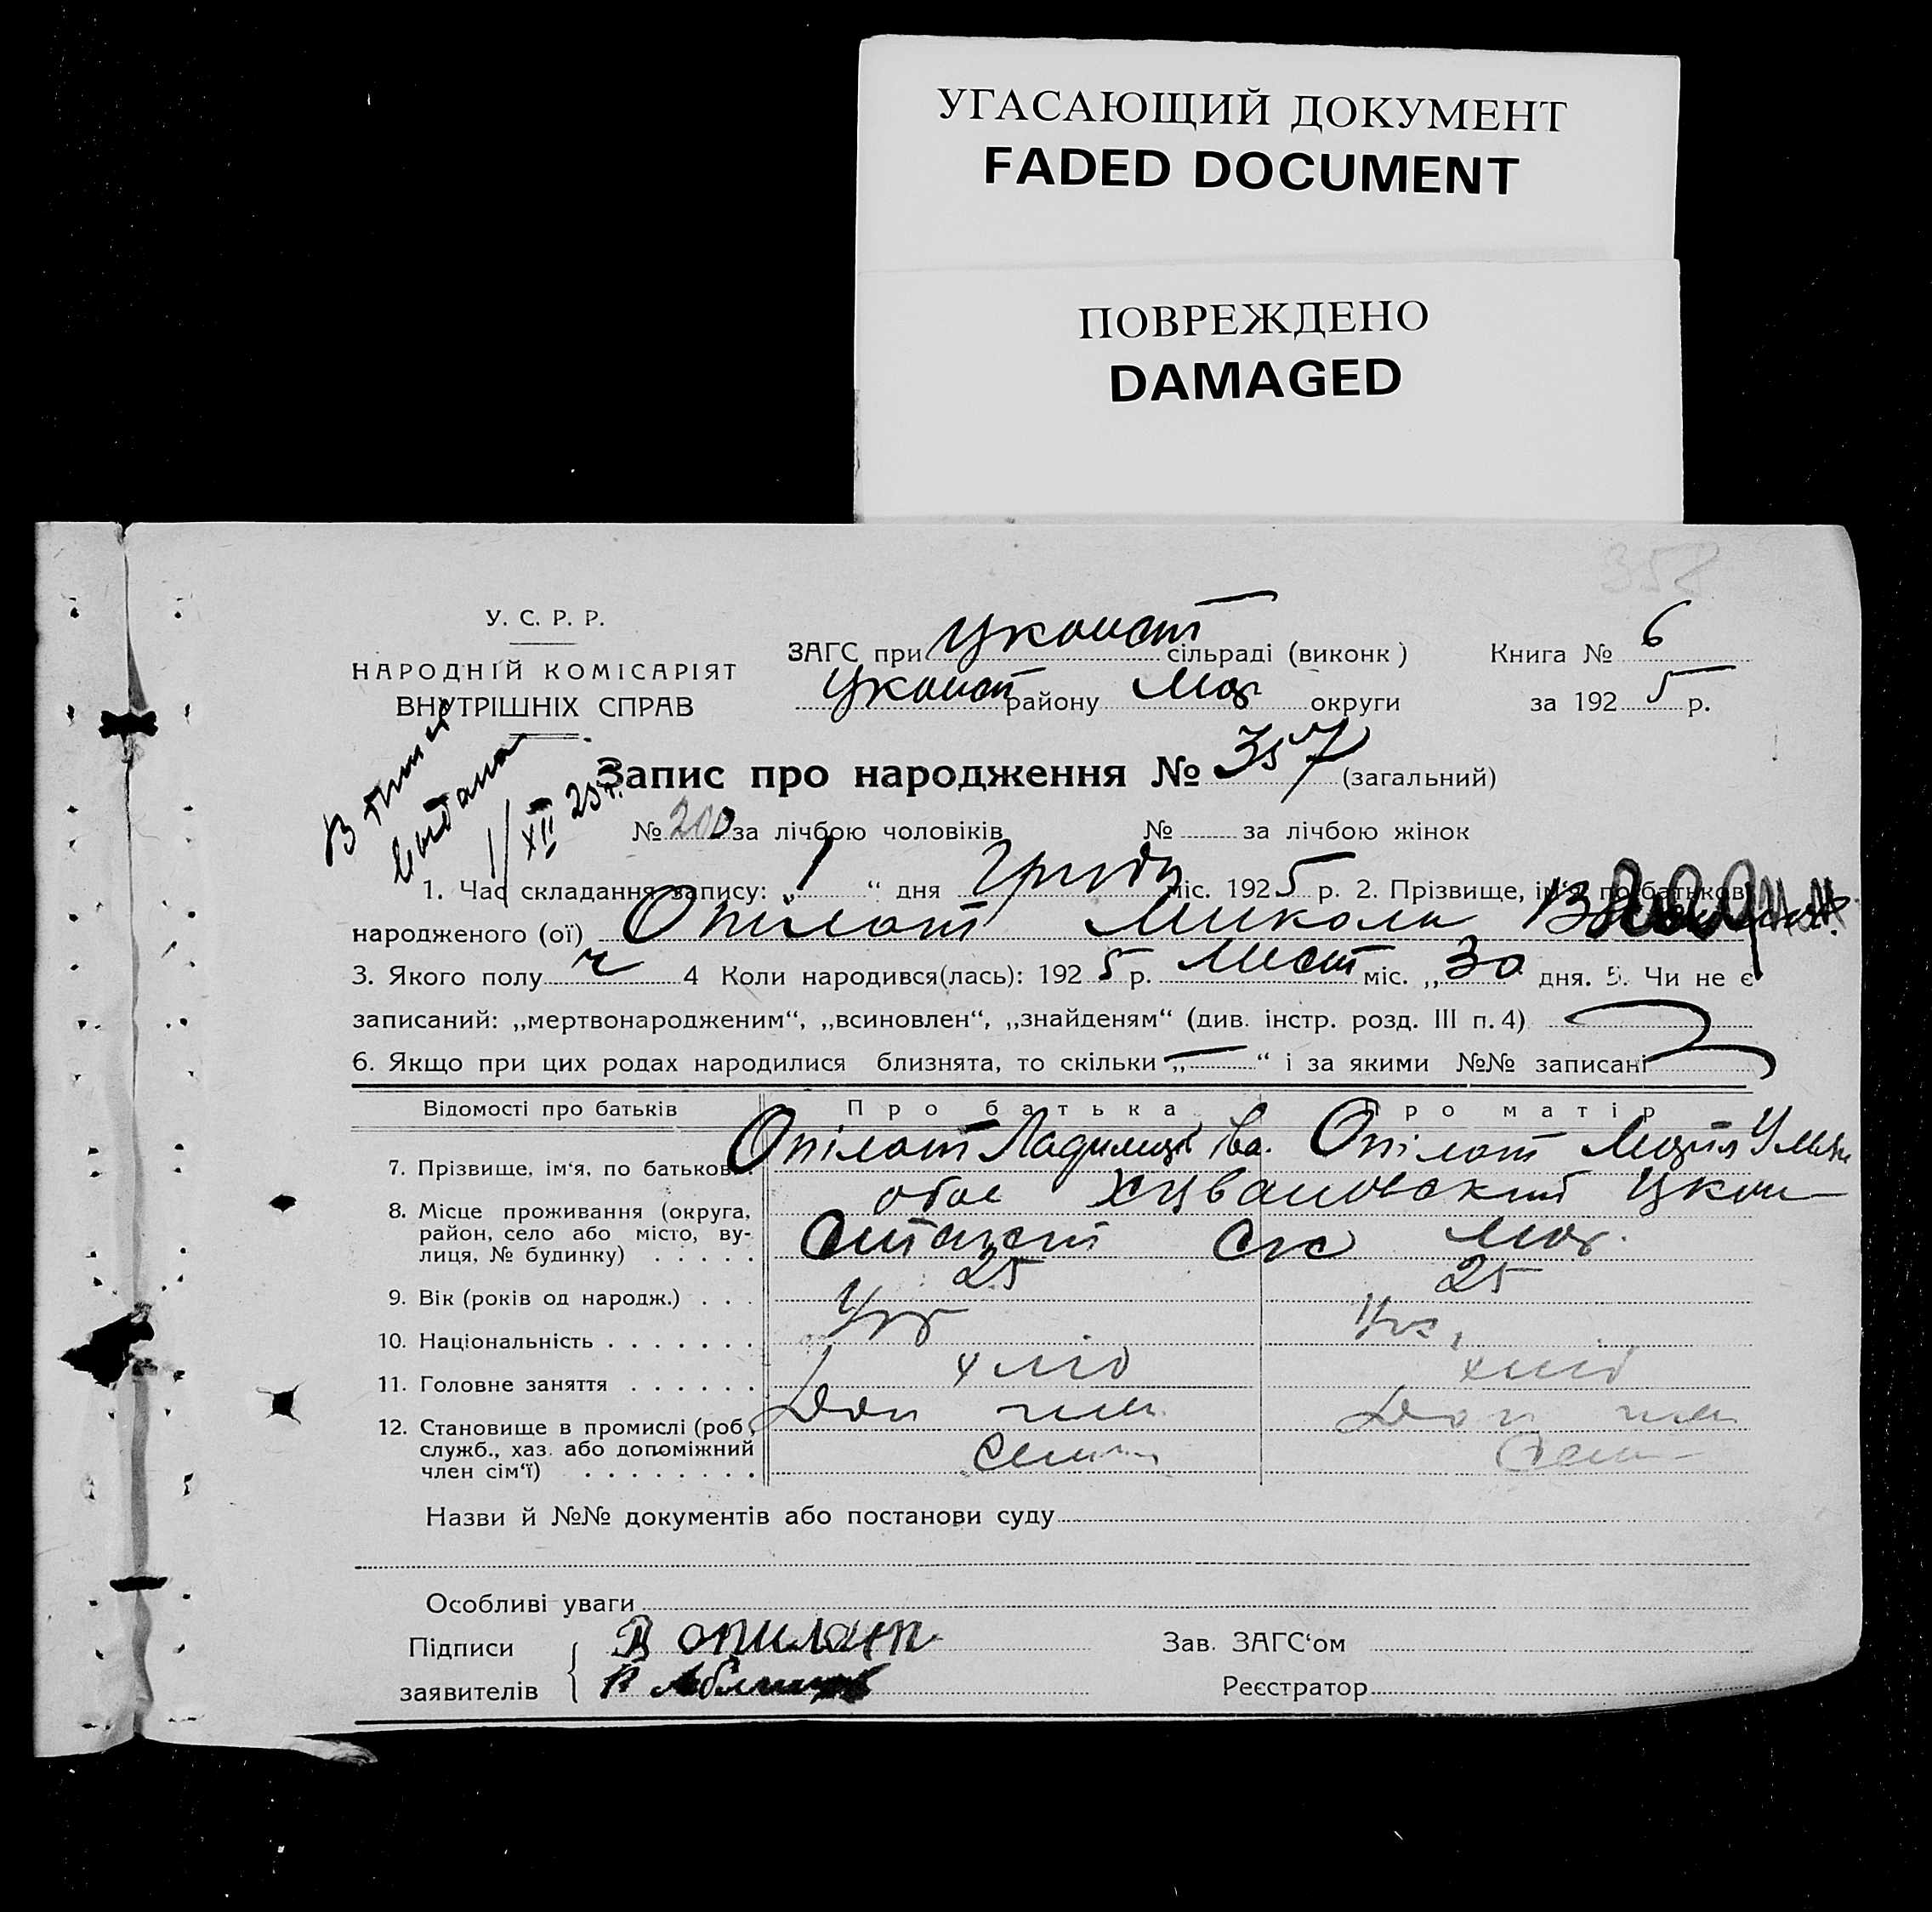 УГАСАЮЩИЙ ДОКУМЕНТ
FADED DOCUMENT
ПОВРЕЖДЕНО
DAMAGED
358
У. С. Р. Р.
НАРОДНІЙ КОМІСАРІЯТ
ВНУТРІШНІХ СПРАВ
ЗАГС при сільраді (виконк) Книга № 6
району округи за 192 5 р.
Запис про народження № 357 (загальний)
XII 25 г.
№ 200 за лічбою чоловіків № за лічбою жінок
1. Час складання запису: „ 1 “ дня Грудн міс. 192 5 р. 2. Прізвище, ім'я, по батькові
народженого (ої) Опілат Микола
3. Якого полу ч 4 Коли народився(лась): 192 5 р. Лист міс. „ 30 дня. 5. Чи не є
записаний: „мертвонародженим“, „всиновлен“, „знайденям“ (див. інстр. розд. III п. 4)
6. Якщо при цих родах народилися близнята, то скільки „ — “ і за якими №№ записані
Відомості про батьків Про батька Про матір
7. Прізвище, ім'я, по батькові. Опілат Іва. Опілат Марія
8. Місце проживання (округа, обое
район, село або місто, ву-
лиця, № будинку) . . . . .
9. Вік (років од народж.) . . . 25 25
10. Національність . . . . . . . Укр Укр.
11. Головне заняття . . . . . . хліб хліб
12. Становище в промислі (роб., Доп член Доп член
служб., хаз. або допоміжний сем
член сім'ї) . . . . . . . . сем
Назви й №№ документів або постанови суду
Особливі уваги
Підписи В Опилат Зав. ЗАГС'ом
заявителів Реєстратор